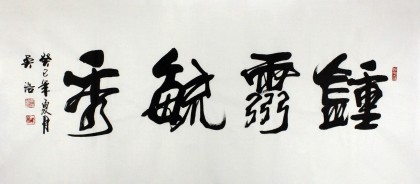 鍾靈毓秀
癸巳年夏月